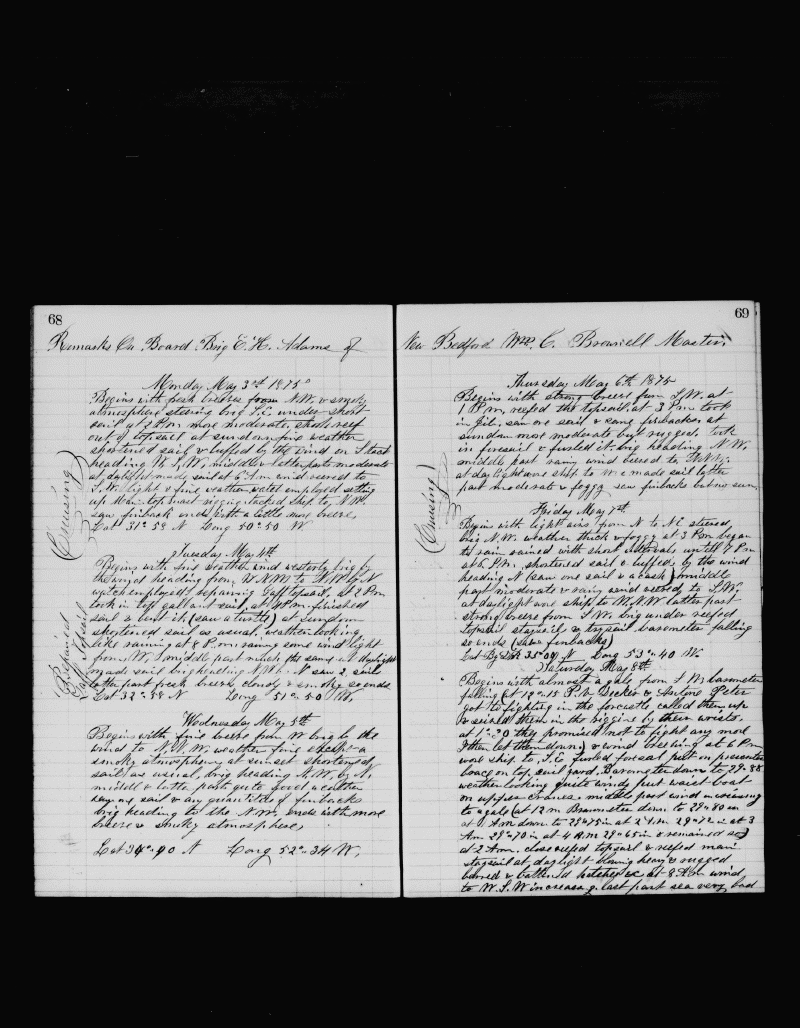 68
Remarks On Board Brig E. H. Adams of
Monday May 3rd 1875
Begins with fresh breeze from N.W. & smoky
atmosphere steering brig S.E. under short
sail at 2 P.m more moderate, shook reef
out of topsail at sundown fine weather
shortened sail & luffed by the wind on S tack
heading W.S.W. middle & latter parts moderate
at daylight made sail at 6 A.m wind veered to
S.W. light & fine weather, watch employed setting
up Main topmast rigging tacked ship to N.W.
saw finback ends with a little more breeze,
Lat 31°.59 N Long 50°.50 W
(Cruising)
Tuesday May 4th
Begins with fine weather wind westerly brig by
the wind heading from N.N.W to N.W. by N
watch employed repairing Gafftopsail, at 2 P.m
took in top gallant sail, at 4 P.m. finished
sail & bent it, (saw a turtle) at sundown
shortened sail as usual, weather looking
like raining at 8 P.m raining some wind light
from W, middle part much the same at daylight
made sail brig heading N.W. N saw 2 sails
latter part fresh breeze cloudy & smoky so ends
Lat 32°.58 N Long 51°.50 W.
Repaired
Gaff Topsail
Wednesday May 5th
Begins with fine breeze from W brig by the
wind to N.N.W. weather fine except a
smoky atmosphere, at sunset shortened
sail as usual, brig heading N.W. by N.
middle & latter part quite good weather
saw one sail & any quantities of finbacks
brig heading to the N.W. ends with more
breeze & smoky atmosphere,
Lat 34°.40 N Long 52°.34 W.
69
New Bedford Wm. C. Brownell Master,
Thursday May 6th 1875
Begins with strong breeze from S.W. at
1 P.m, reefed the topsail, at 3 P.m took
in jib, saw one sail & some finbacks, at
sundown most moderate but rugged, took
in foresail & furled it, brig heading N.W.
middle part rainy wind veered to
at daylight wore ship to W & made sail latter
part moderate & foggy saw finbacks but no sun
(Cruising)
Friday May 7th
Begins with light airs from N to NE steered
brig N.W. weather thick & foggy at 3 P.m began
to rain rained with short intervals until 7 P.m
at 6 P.m. shortened sail & luffed by the wind
heading N (saw one sail & a cask) middle
part moderate & rainy wind veered to S.W.
at daylight wore ship to W.N.W latter part
strong breeze from S.W. brig under reefed
topsail staysails & trysail barometer falling
so ends (saw finbacks)
Lat By 35°09 N Long 53°.40 W.
Saturday May 8th
Begins with almost a gale from S.W. barometer
falling (at 12°.15 P.m Decker & Antone Peter
got to fighting in the forcastle called them up
& seized them in the rigging by their wrists,
at 1°.30 they promised not to fight any more
& then let them down) & wind breezing at 6 P.m
wore ship to S.E. furled foresail put on preventer
brace on top sail yard, Barometer down to 29.88
weather looking quite windy put waist boat
on upper cranes, middle part wind increasing
to a gale (at 12 m Barometer down to 29°.80 in
at 1 A m down to 29°.75 in at 2 A.m. 29°.72 in at 3
A.m. 29°.70 in at 4 A.m 29°.65 in & remained so)
at 2 A.m. close reefed topsail & reefed main
staysail at daylight blowing heavy & rugged
barred & battened hatches &c at 8 A.m wind
to W.S.W increasing last part sea very bad